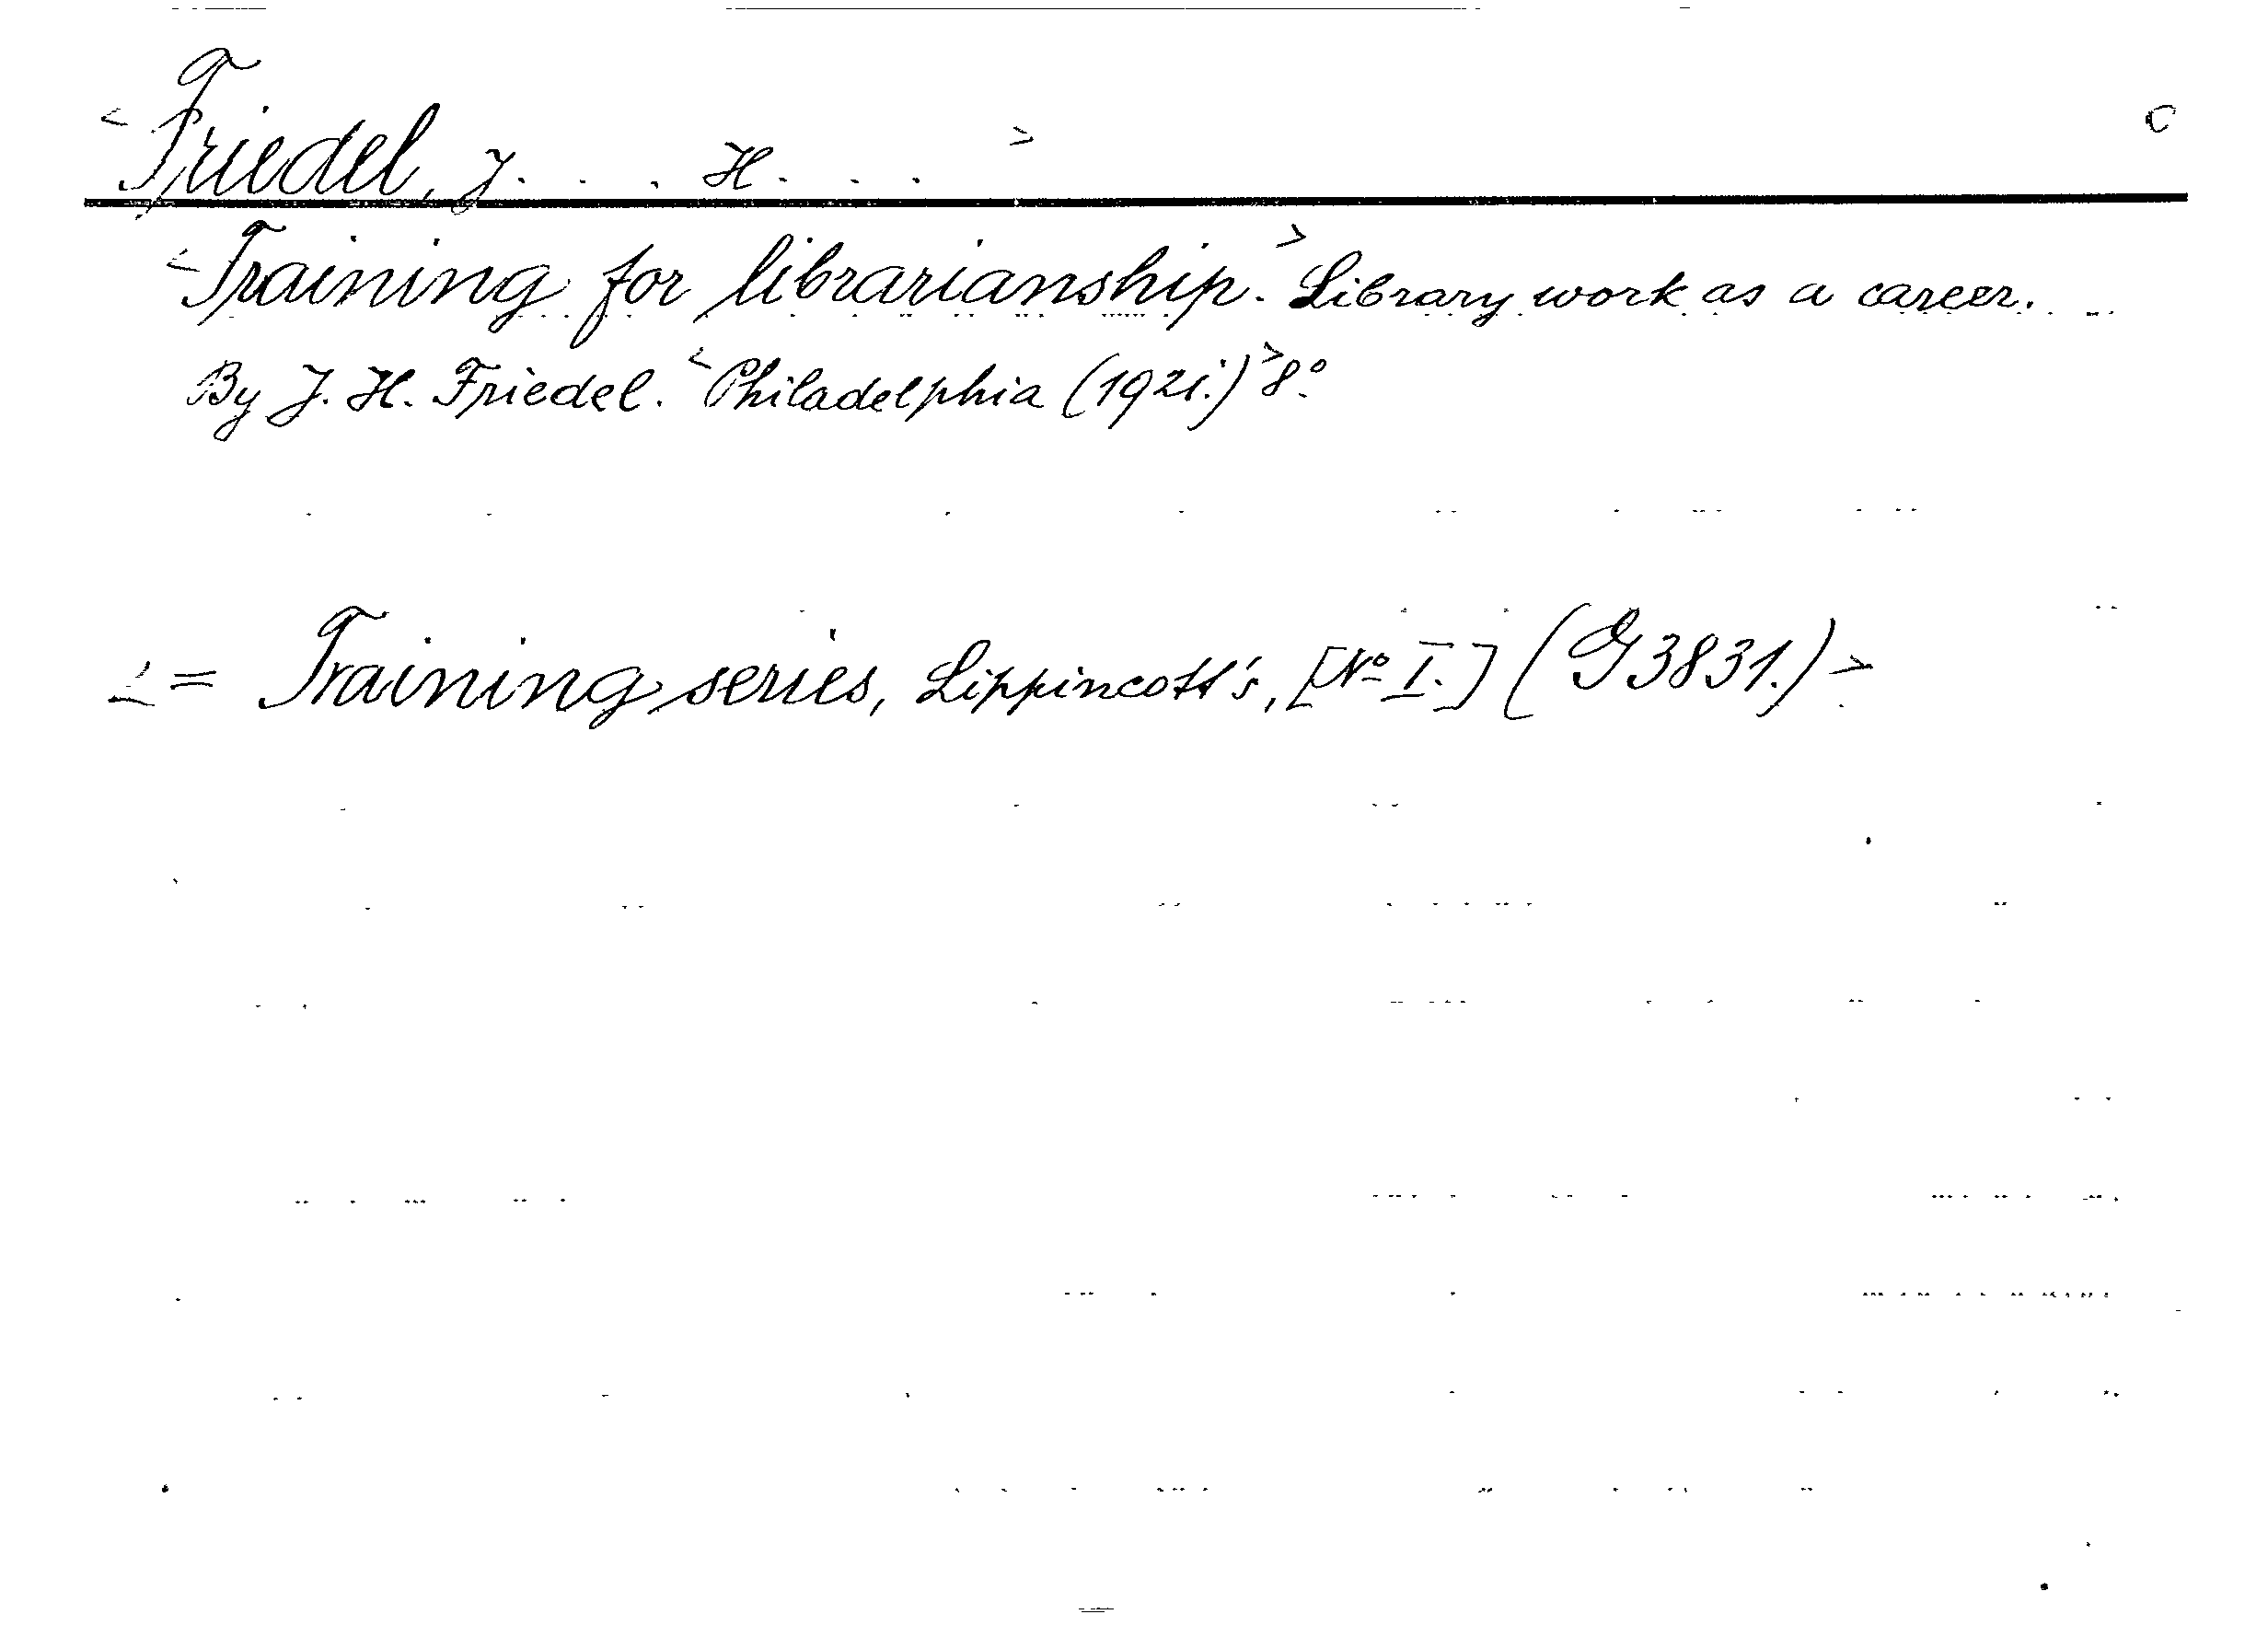 < Friedel, J. . . . H. . . . > C
< Training for librarianship. > Library work as a career.
By J. H. Friedel. < Philadelphia (1921.) > 8º.
< = Training series, Lippincott's, [Nº I.] (G3831.) >